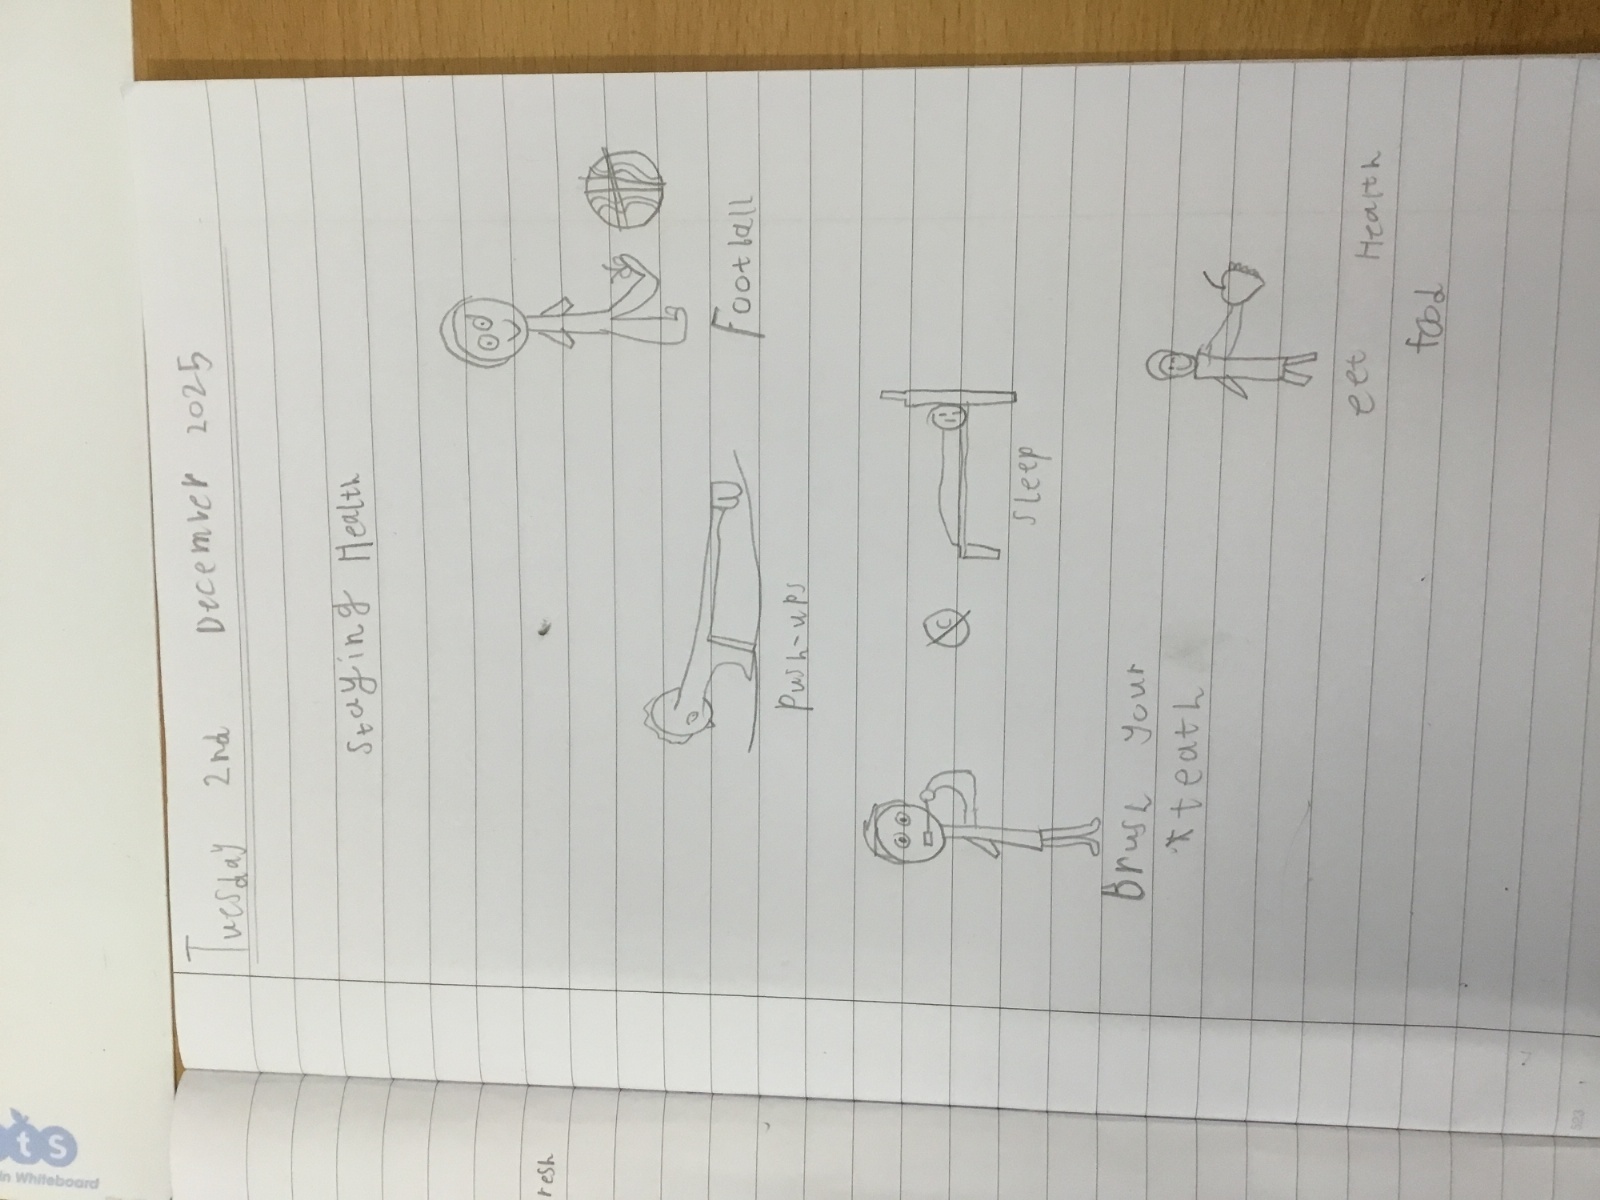 Tuesday 2nd December 2025
Staying Health
Football
Push-ups
Sleep
Brush your
teath
eet Health
food
resh
ts
in Whiteboard